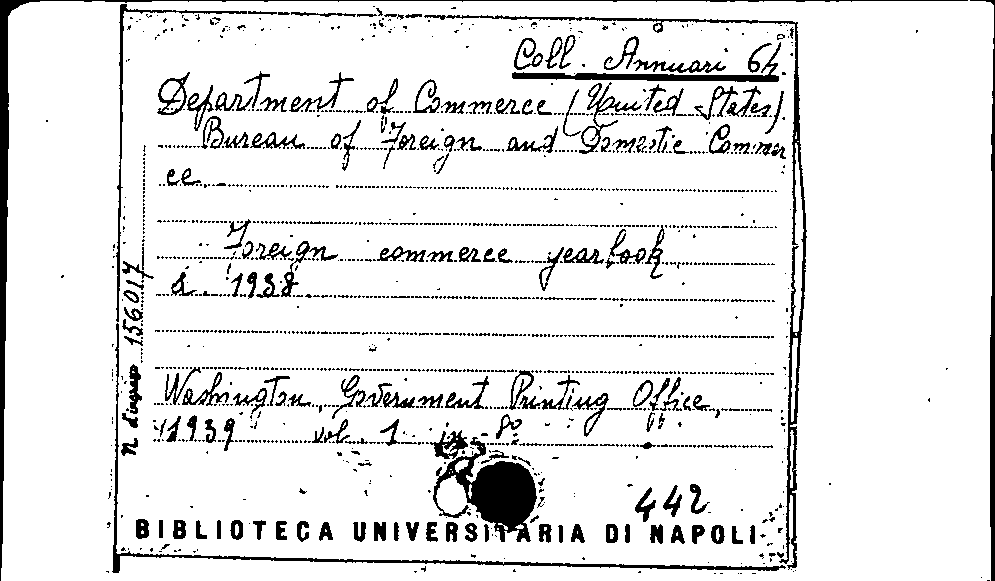 Coll. Annuari 64.
Department of Commerce (United States).
Bureau of Foreign and Domestic Commer
ce.
Foreign commerce yearbook.
a. 1938.
Washington, Government Printing Office,
1939 vol. 1 in-8º
442
BIBLIOTECA UNIVERSITARIA DI NAPOLI
n. d'ingresso 156017